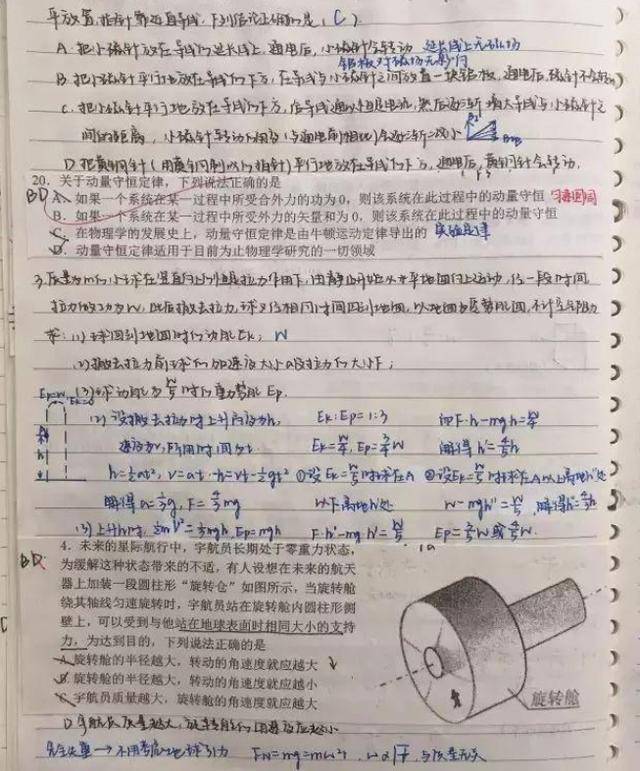 平放置,指针静止且导线.下列结论正确的是(C)
A.把小磁针放在导线的延长线上,通电后,小磁针会转动 延长线上无磁场
铝板对磁场无影响
B.把小磁针平行地放在导线的下方,在导线与小磁针之间放置一块铝板,通电后,磁针不会转动
C.把小磁针平行地放在导线的下方,给导线通以恒定电流,然后逐渐增大导线与小磁针之
间的距离,小磁针转动的角度(与通电前相比)会逐渐减小
D.把黄铜针(用黄铜制成的指针)平行地放在导线的下方,通电后,黄铜针会转动.
20.关于动量守恒定律,下列说法正确的是
BD A、如果一个系统在某一过程中所受合外力的功为0,则该系统在此过程中的动量守恒 匀速圆周
B.如果一个系统在某一过程中所受外力的矢量和为0,则该系统在此过程中的动量守恒
C.在物理学的发展史上,动量守恒定律是由牛顿运动定律导出的 实验定律
D.动量守恒定律适用于目前为止物理学研究的一切领域
3.质量为m的小球在竖直向上的恒定拉力作用下,由静止开始从水平地面向上运动,经一段时间,
拉力做功为W,此后撤去拉力,球又经相同时间回到地面,以地面为零势能面,不计空气阻力
求:(1)球回到地面时的动能Ek; W
(2)撤去拉力前球的加速度大小a及拉力的大小F;
(3)球动能为W/5时的重力势能Ep.
(2)设撤去拉力时上升高度为h, Ek:Ep=1:3 由F·h-mgh=W/4
速度为v,F作用时间为t. Ek=W/4,Ep=3/4W 解得h'=4/5h
h=1/2at²,v=at -h=vt-1/2gt² ①设Ek=W/5时球在A ②设Ek=W/5时球在A以上离地h''处
解得a=1/3g,F=4/3mg 以下离地h'处 W-mgh''=W/5,解得h''=4/5h
(3)上升h时,1/2mv²=1/3mgh,Ep=mgh F·h'-mgh'=W/5 Ep=3/5W或4/5W.
BD 4.未来的星际航行中,宇航员长期处于零重力状态,
为缓解这种状态带来的不适,有人设想在未来的航天
器上加装一段圆柱形“旋转仓”如图所示,当旋转舱
绕其轴线匀速旋转时,宇航员站在旋转舱内圆柱形侧
壁上,可以受到与他站在地球表面时相同大小的支持
力,为达到目的,下列说法正确的是
A.旋转舱的半径越大,转动的角速度就应越大
B.旋转舱的半径越大,转动的角速度就应越小
旋转舱
C.宇航员质量越大,旋转舱的角速度就应越大
D.宇航员质量越大,旋转舱的角速度应越小
完全失重→不用考虑地球引力 FN=mg=mω²r,ω∝√1/r,与质量无关